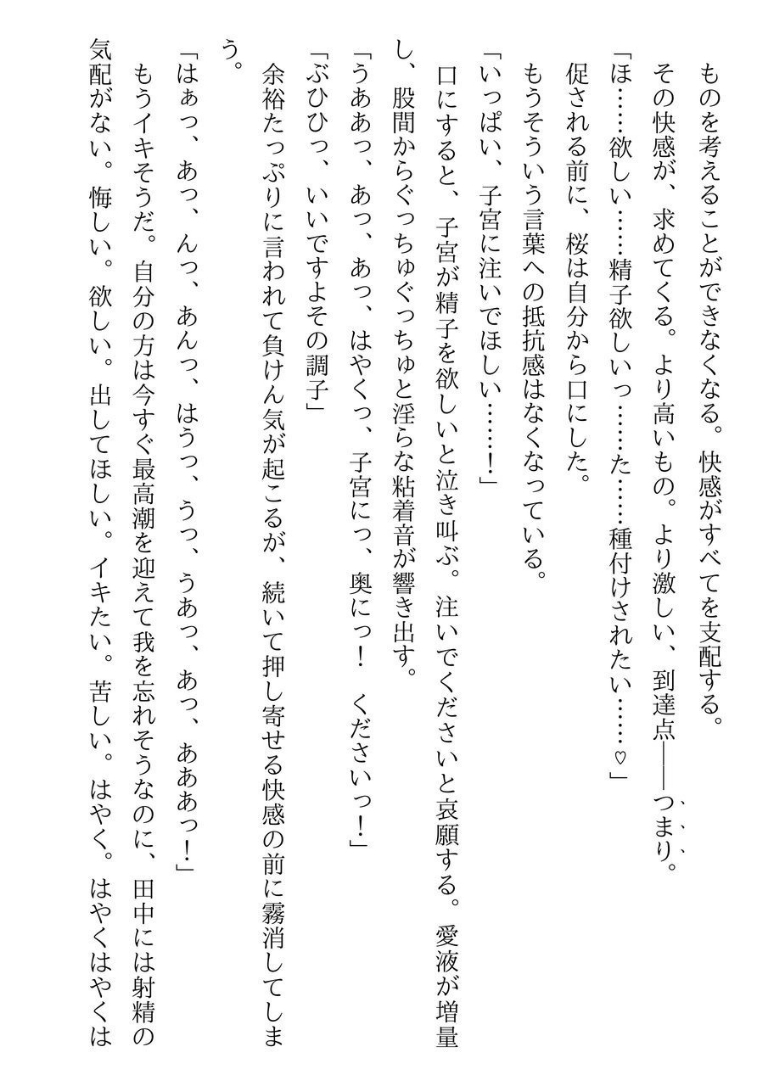 ものを考えることができなくなる。快感がすべてを支配する。
その快感が、求めてくる。より高いもの。より激しい、到達点――つまり。
「ほ……欲しい……精子欲しいっ……た……種付けされたい……♡」
促される前に、桜は自分から口にした。
もうそういう言葉への抵抗感はなくなっている。
「いっぱい、子宮に注いでほしい……！」
口にすると、子宮が精子を欲しいと泣き叫ぶ。注いでくださいと哀願する。愛液が増量
し、股間からぐっちゅぐっちゅと淫らな粘着音が響き出す。
「うああっ、あっ、あっ、はやくっ、子宮にっ、奥にっ！　くださいっ！」
「ぶひひっ、いいですよその調子」
余裕たっぷりに言われて負けん気が起こるが、続いて押し寄せる快感の前に霧消してしま
う。
「はぁっ、あっ、んっ、あんっ、はうっ、うっ、うあっ、あっ、あああっ！」
もうイキそうだ。自分の方は今すぐ最高潮を迎えて我を忘れそうなのに、田中には射精の
気配がない。悔しい。欲しい。出してほしい。イキたい。苦しい。はやく。はやくはやくは